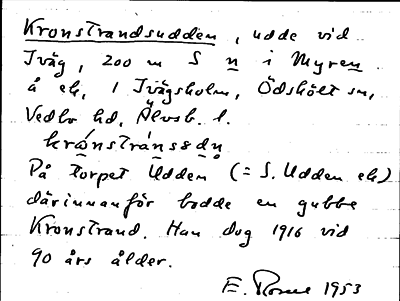 Kronstrandsudden, udde vid
Iväg, 200 m S n i Myren
å ek, 1 Ivägsholm, Ödskölt sn,
Vedbo hd, Älvsb. l.
krónstrànsədn
På torpet Udden (= S. Udden ek)
därinnanför bodde en gubbe
Kronstrand. Han dog 1916 vid
90 års ålder.
E. 1953